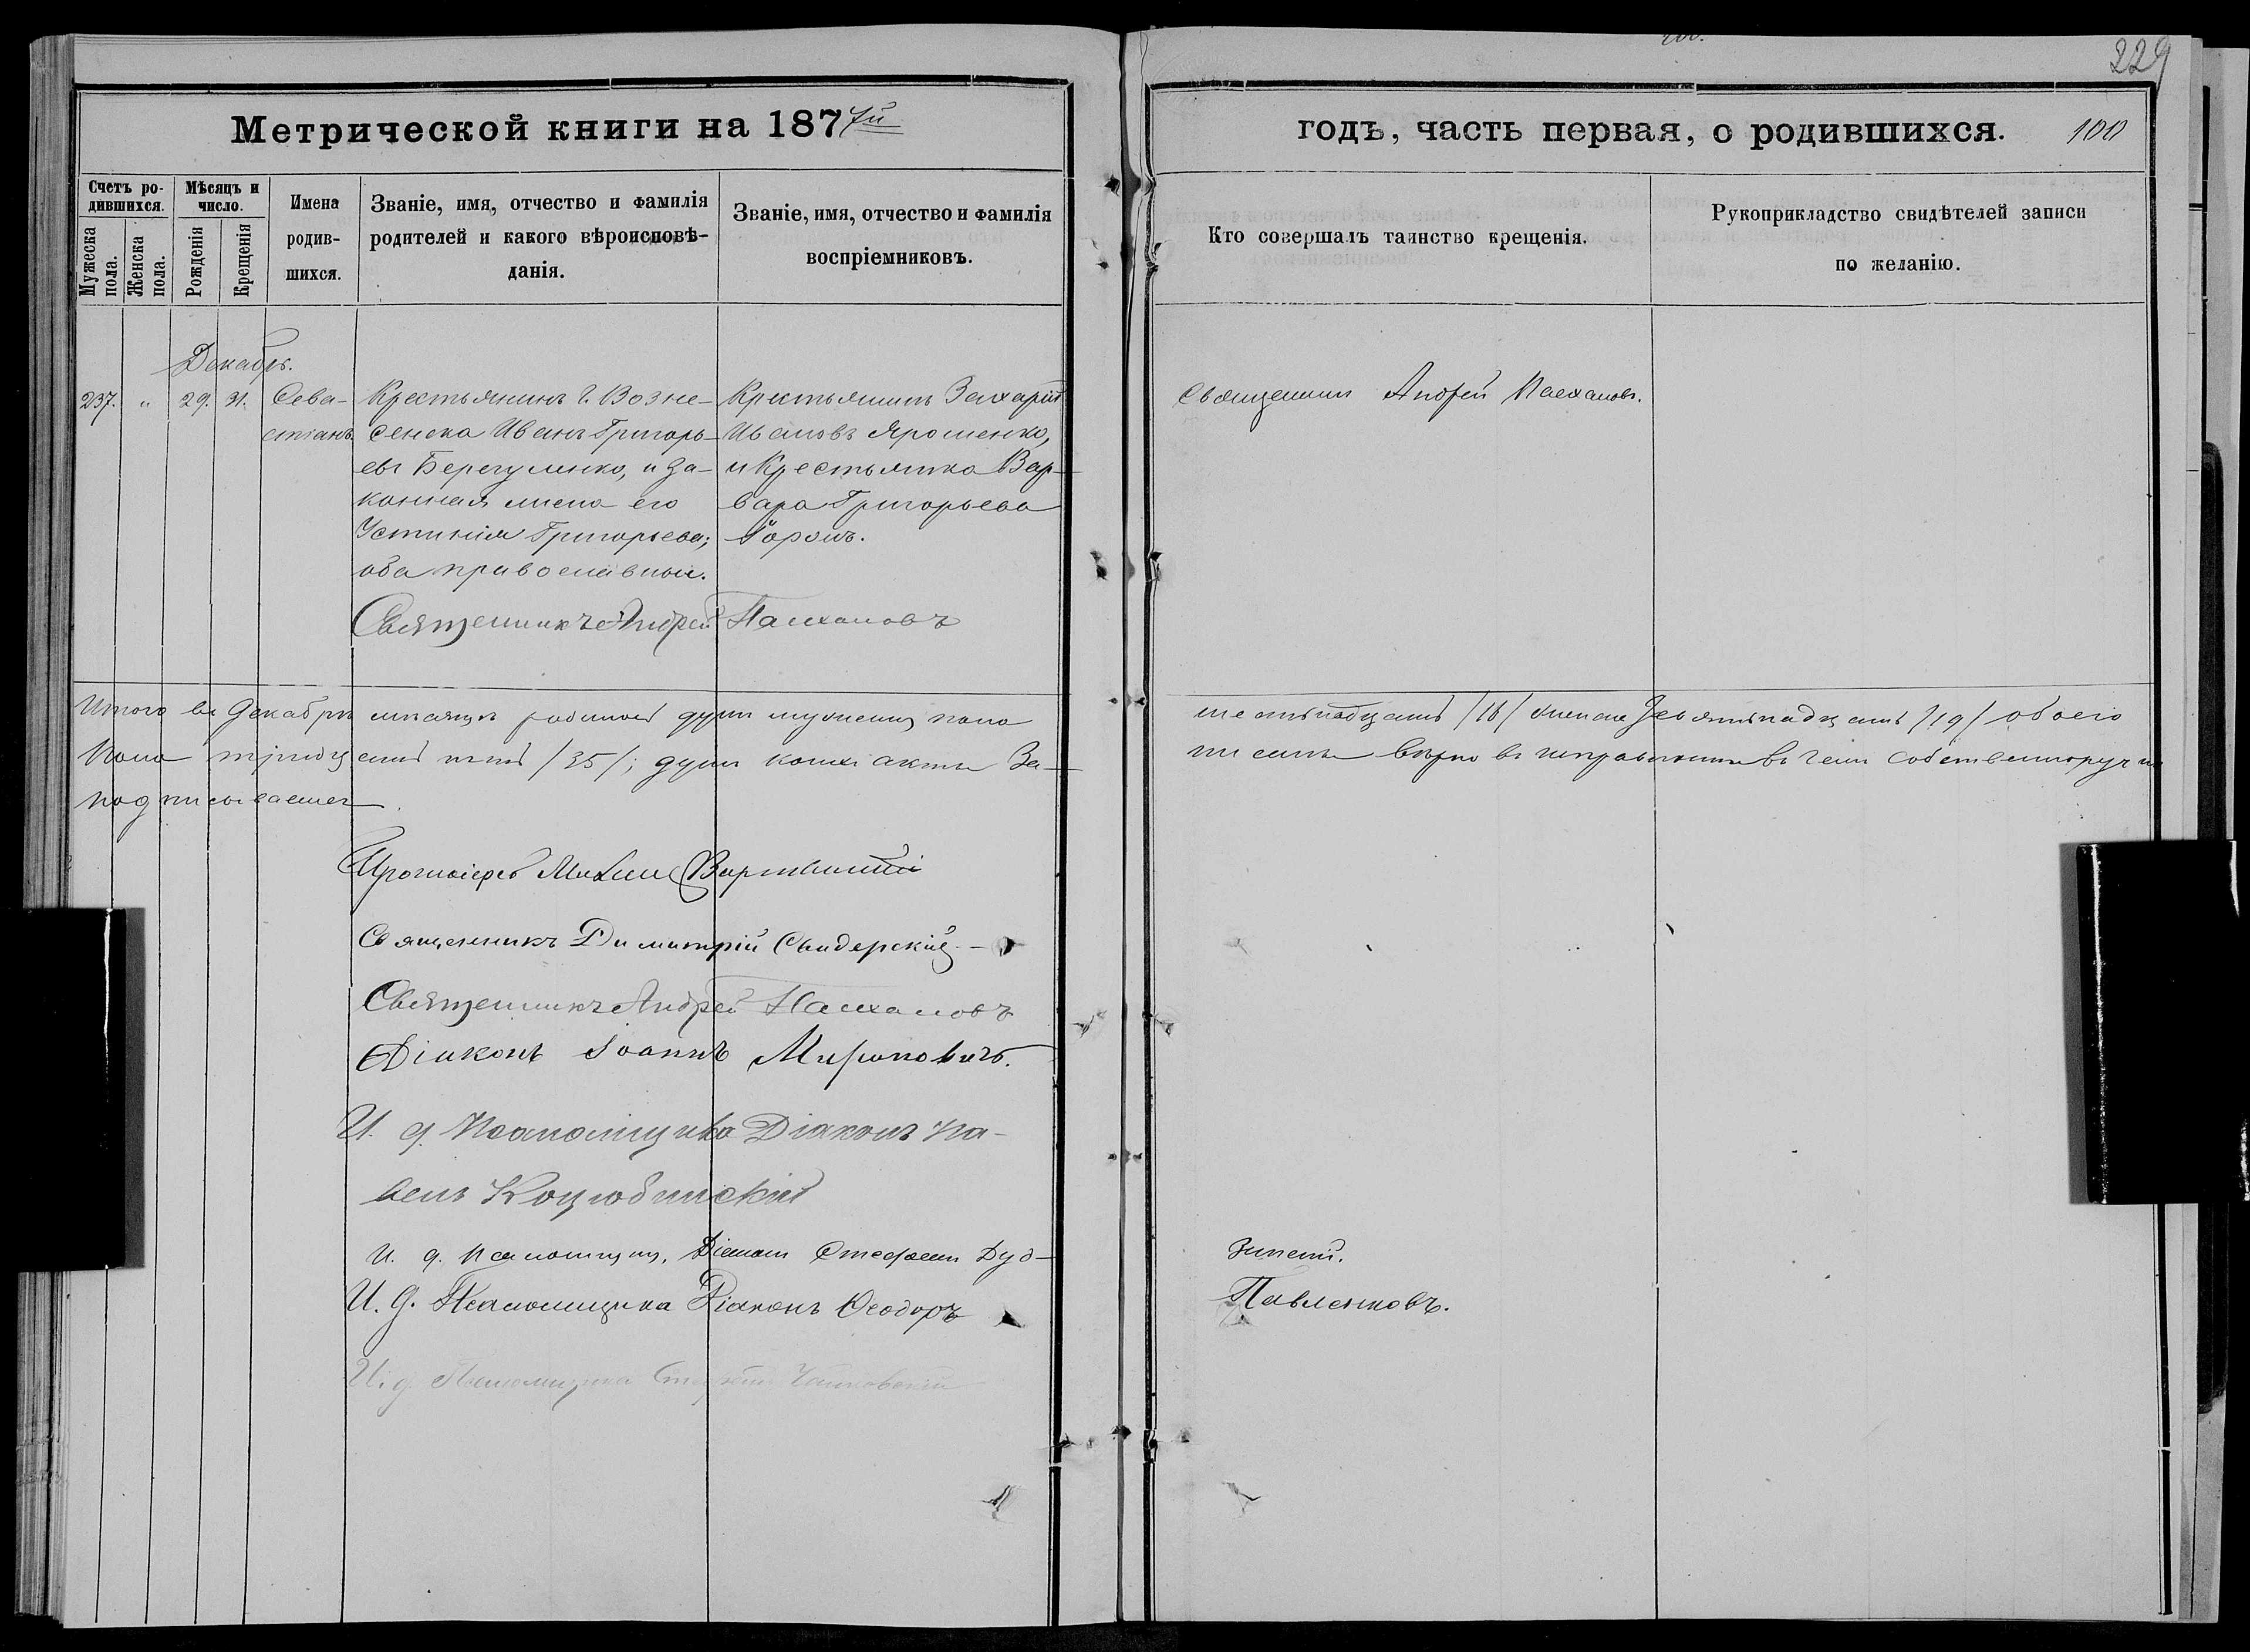 229
Метрической книги на 1877й
годъ, часть первая, о родившихся.
100
Счетъ ро-
дившихся.
Мужеска
пола.
Женска
пола.
Мѣсяцъ и
число.
Рожденія
Крещенія
Имена
родив-
шихся.
Званіе, имя, отчество и фамилія
родителей и какого вѣроисповѣ-
данія.
Званіе, имя, отчество и фамилія
воспріемниковъ.
Кто совершалъ таинство крещенія.
Рукоприкладство свидѣтелей записи
по желанію.
Декабрь.
237. " 29. 31.
Сева-
стіанъ.
Крестьянинъ г. Возне-
сенска Иванъ Григорь-
евъ Берегуленко, и за-
конная жена его
Устинія Григорьева;
оба православные.
Крестьянинъ Захарій
Ивановъ Ярошенко,
и Крестьянка Вар-
вара Григорьева
Священникъ Андрей
Священникъ Андрей
Итого въ Декабрѣ мѣсяцѣ родилось душъ мужеска пола
шестнадцать /16/ женска девятнадцать /19/ обоего
пола тридцать пять /35/; душъ коихъ акты за-
писаны вѣрно въ чемъ собственноручно
подписываемся.
Протоіерей
Священникъ Димитрій Свидерскій
Священникъ Андрей
Діаконъ Іоаннъ Мироновичъ.
И. д. Псаломщика Діаконъ Па-
велъ Коцюбинскій
И. д. псаломщика, Діаконъ Стефанъ Дуб-
И. д. Псаломщика Діаконъ Ѳеодоръ
Павленковъ.
И. д. Псаломщика